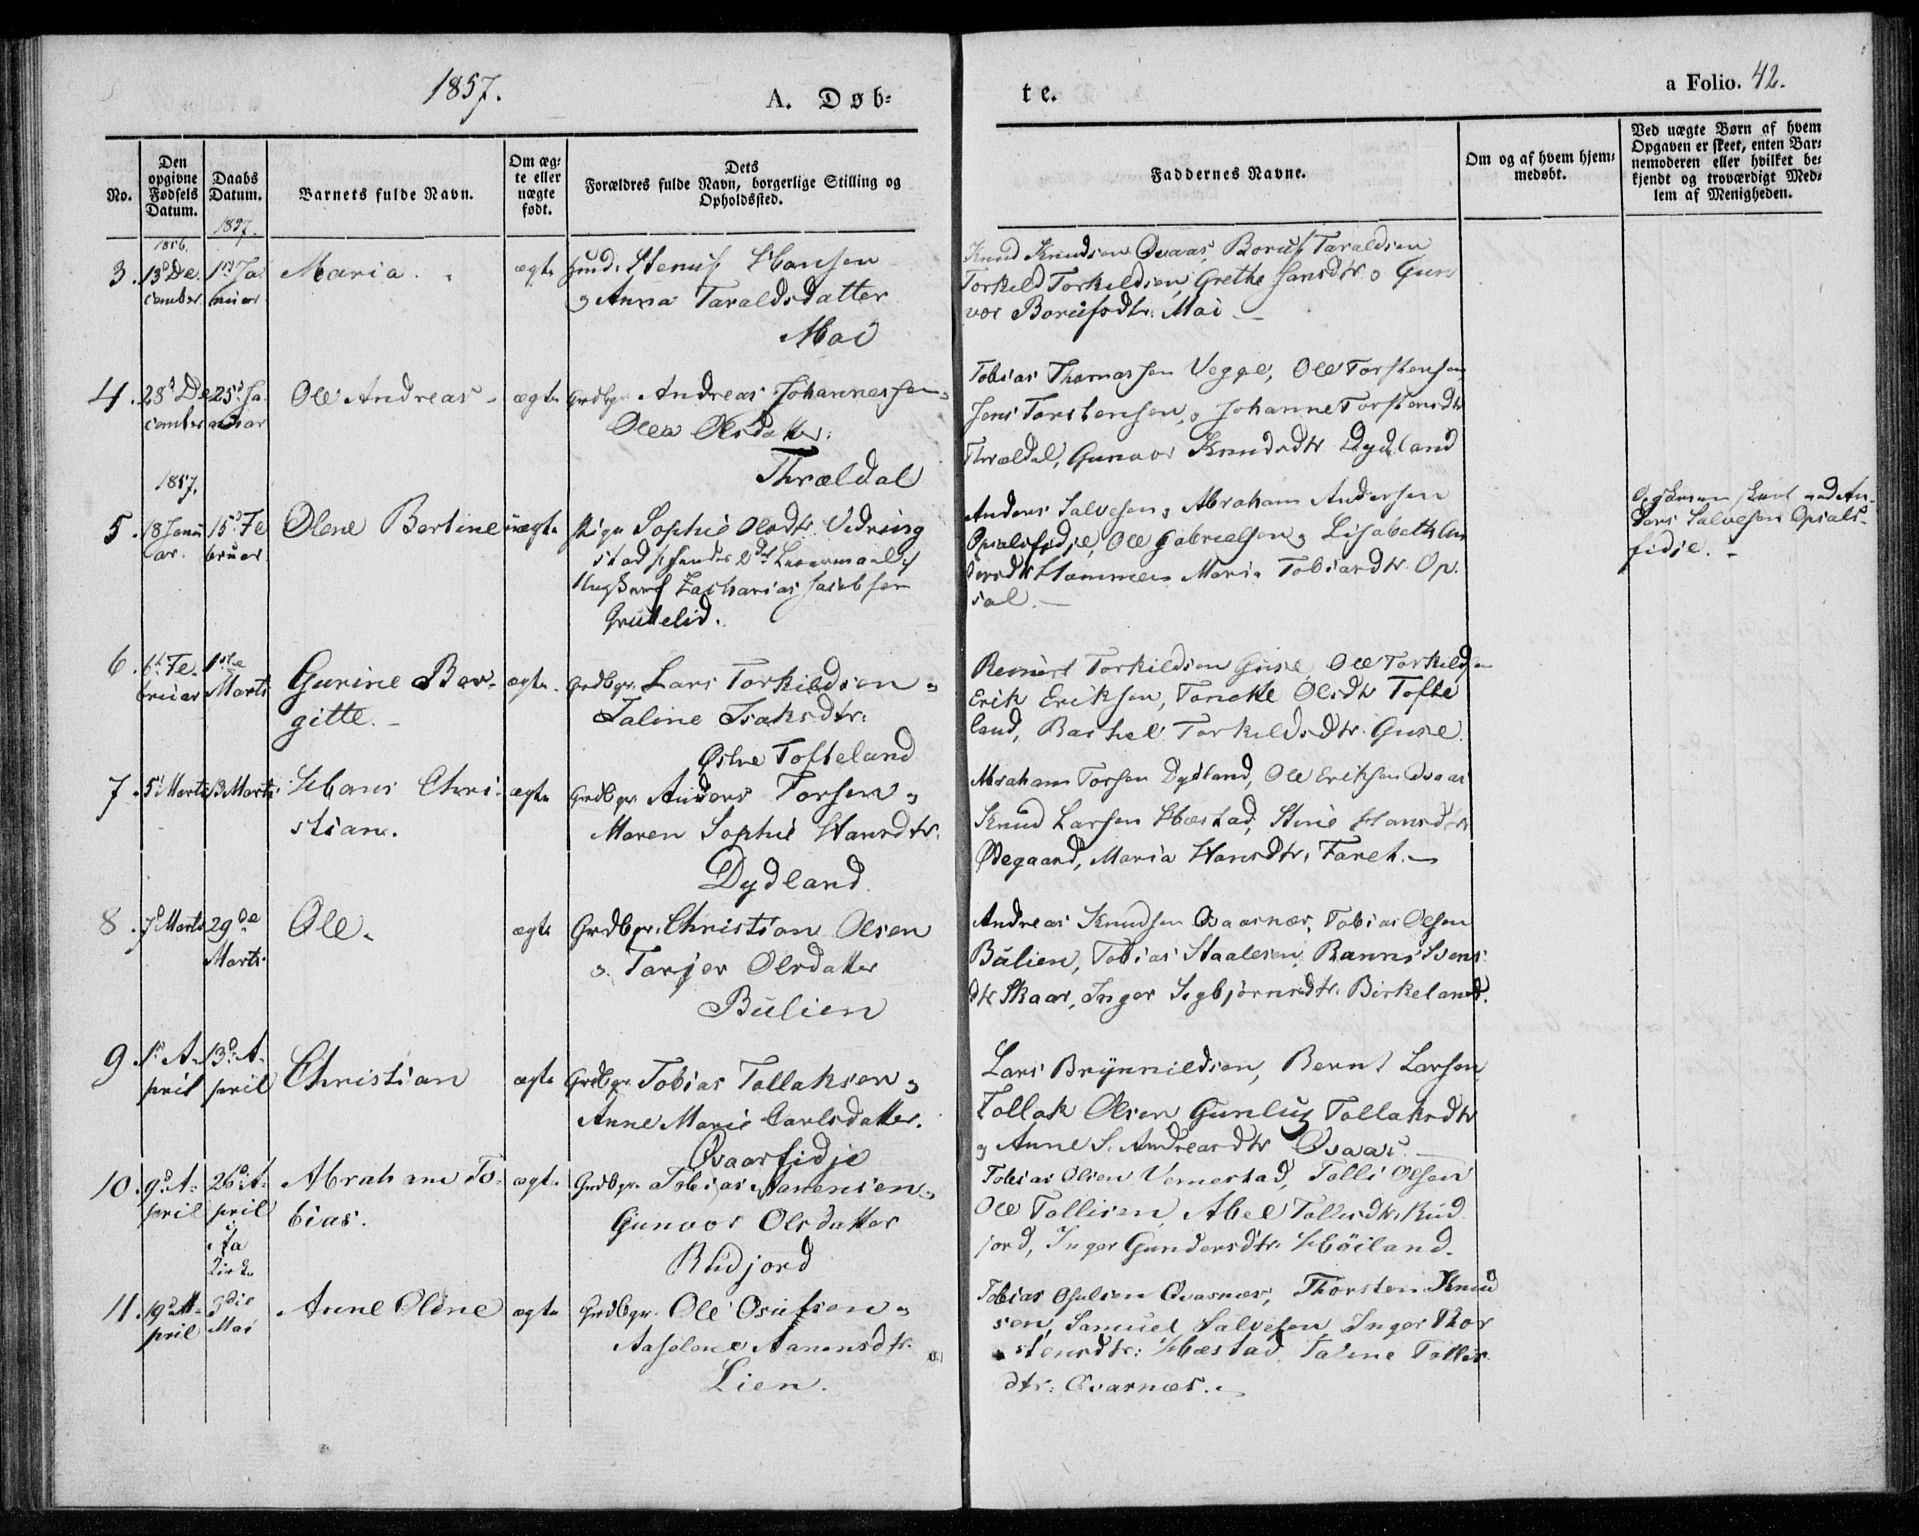 1857.
A. Døb-
te.
a Folio. 42.
No.
Den opgivne Fødsels Datum.
Daabs Datum.
Barnets fulde Navn.
Om ægte eller nægte født.
Dets Forældres fulde Navn, borgerlige Stilling og Opholdssted.
Faddernes Navne.
Om og af hvem hjemmedøbt.
Ved uægte Børn af hvem Opgaven er skeet, enten Barnemoderen eller hvilket bekjendt og troværdigt Medlem af Menigheden.
1856.
1857.
3. 13d De- 1ste Ja- Maria. ægte
cember nuar
Hansen
og Anna Taraldsdatter
Moi
Knud Knudsen Qvaas, Boruf Taraldsen
Torkild Torkildsen, Grethe Hansdtr. og Gun
vor Borufsdtr. Moi
4. 28d De 25d Ja- Ole Andreas ægte Grdbgr. Andreas Johannessen og
cember nuar
Olea Olsdatter.
Thrældal
Tobias Thomassen Vegge, Ole Torstensen
Jens Torstensen, og Johanne Torstensdtr
Thrældal, Gunvor Knudsdtr Dydland
1857.
5. 18 Janu 15d Fe Olene Bertine uægte Pige Sophie Olsdtr Vedring
ar. bruar
stad
Zacharias Jacobsen
Grutelid.
Anders Salvesen og Abraham Andersen
Opsalsfidje, Ole Gabrielsen og Lisabeth An
dersdtr Hommen Maria Tobiasdtr Op
sal.
Opgaven skeet ved An-
ders Salvesen Opsals-
fidje.
6. 6te Fe- 1ste Gurine Ber- ægte. Grdbgr. Lars Torkildsen og
bruar Marts
gitte.
Taline Isaksdtr.
Østre Tofteland
Reinert Torkildsen Guse, Ole Torkildsen
Erik Eriksen, Toncke Olsdtr Tofte
land, Rachel Torkildsdtr. Guse.
7. 5 Marts 13 Marts Hans Chri- ægte Grdbgr Anders Torsen og
stian.
Maren Sophie Hansdtr.
Dydland.
Abraham Torsen Dydland, Ole Eriksen Qvaas
Knud Larsen Hæstad, Stine Hansdtr
Ødegaard, Maria Hansdtr. Faret.
8. 7d Marts 29de Ole. ægte Grdbgr. Christian Olsen
Marts.
og Tarjer Olsdatter
Bulien
Andreas Knudsen Qvaasnæs, Tobias Olsen
Bulien, Tobias Staalesen, Ranni Svens
dtr Skaar, Inger Sigbjørnsdtr. Birkeland.
9. 1st A- 13d A- Christian ægte Grdbgr Tobias Tollaksen og
pril pril
Anne Marie Carlsdatter.
Qvaasfidje
Lars Brynnildsen, Bernt Larsen
Tollak Olsen Gunlug Tollaksdtr
og Anne S. Andreasdtr Qvaas.
10. 9d A- 26d A- Abraham To- ægte Grdbgr. Tobias Aanensen og
pril pril
bias.
Gunvor Olsdatter
Rudjord
Tobias Olsen Vemestad, Tolli Olsen
Ole Tollisen, Abel Tollisdtr. Rud
jord, Inger Gundersdtr. Høiland.
11. 19d A- 3die Anne Oline ægte Grdbgr. Ole Osulsen og
pril Mai
Aaselene Aanensdtr.
Lien.
Tobias Osulsen Qvasnæs, Thorsten Knud
sen, Samuel Salvesen, Inger Thor
stensdtr: Hæstad, Taline Tollis
dtr. Qvasnæs.